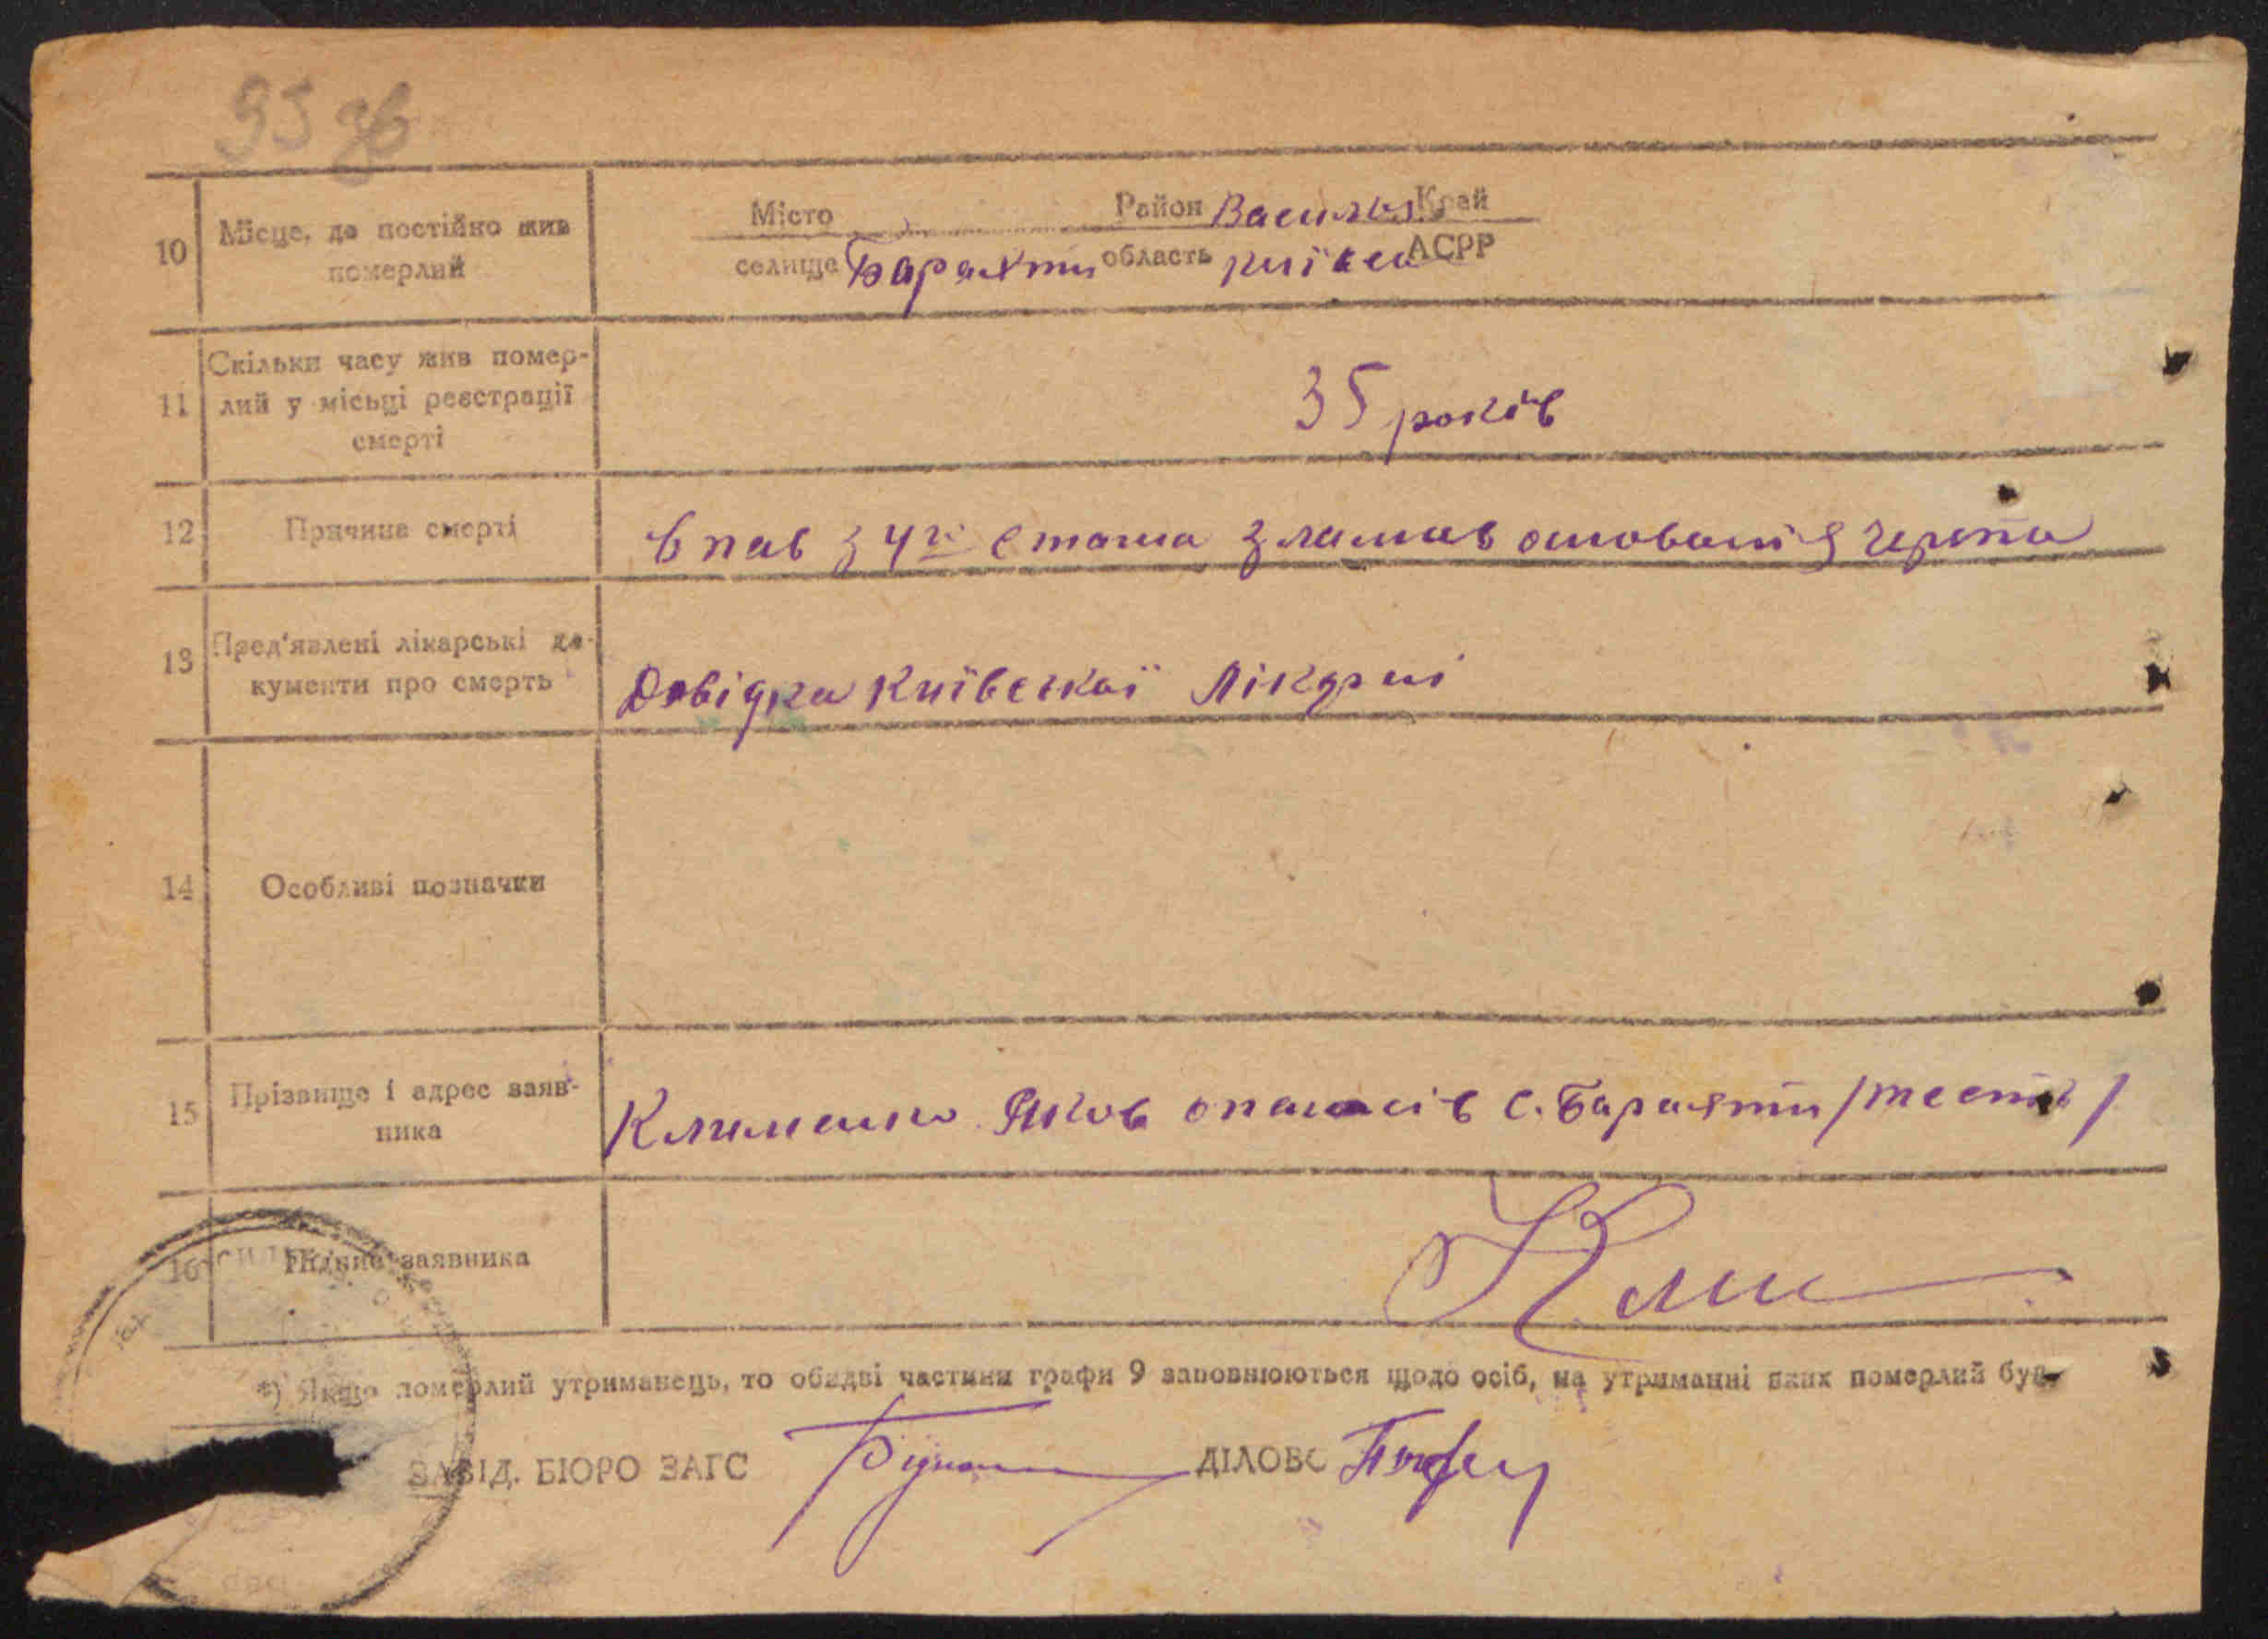 93 зв
10 Місце, де постійно жив померлий
Місто Район Васильк Край
селище Барахти область Київськ АСРР
11 Скільки часу жив помер-
лий у місьці реєстрації
смерті
35 років
12 Причина смерті
Впав з 4го етажа зламав основания черепа
13 Пред'явлені лікарські до-
кументи про смерть
Довідка Київської Лікарні
14 Особливі позначки
15 Прізвище і адрес заяв-
ника
Клименко Яков опанасів с. Барахти /тесть/
16 Підпис заявника
Клим
*) Якщо померлий утриманець, то обидві частини графи 9 заповнюються щодо осіб, на утриманні яких померлий був.
ЗАВІД. БЮРО ЗАГС ДІЛОВО